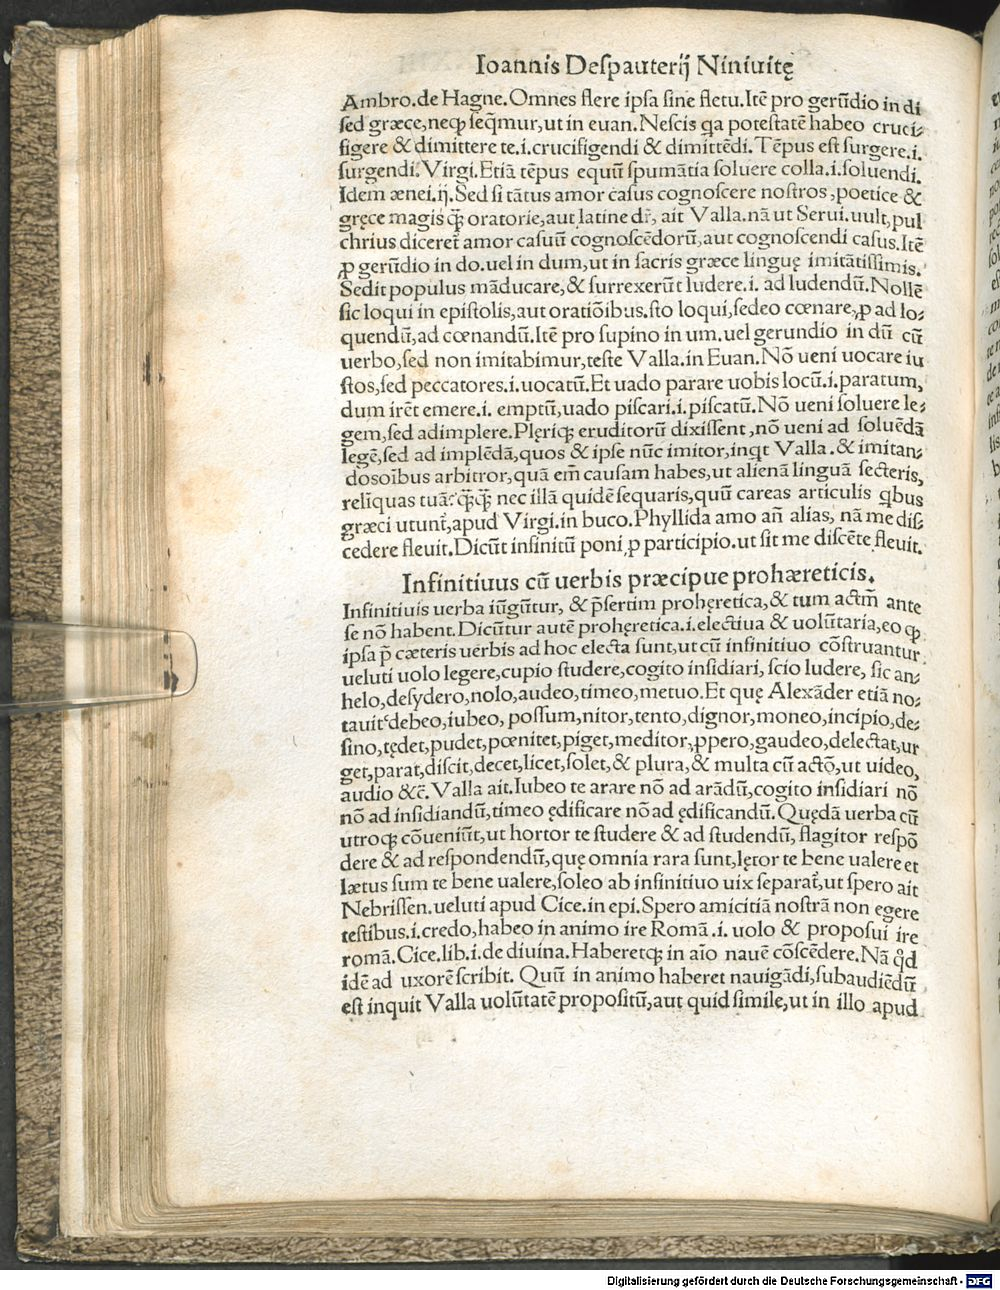 Ioannis Deſpauterij Niniuitę
Ambro.de Hagne.Omnes flere ipſa ſine fletu.Itẽ pro gerũdio in di
ſed græce,neqꝫ ſeq̃mur,ut in euan. Neſcis ꝗa poteſtatẽ habeo cruci⸗
figere & dimittere te.i.crucifigendi & dimittẽdi. Tẽpus eſt ſurgere.i.
ſurgendi. Virgi. Etiã tẽpus equũ ſpumãtia ſoluere colla.i.ſoluendi.
Idem ænei.ij. Sed ſi tãtus amor caſus cognoſcere noſtros, poetice &
gręce magis ꝙ̃ oratorie,aut latine dr̃, ait Valla.nã ut Serui.uult,pul
chrius diceret̃ amor caſuũ cognoſcẽdorũ,aut cognoſcendi caſus.Itẽ
ꝓ gerũdio in do.uel in dum,ut in ſacris græce linguę imitãtiſſimis.
Sedit populus mãducare,& ſurrexerũt ludere.i. ad ludendũ. Nollẽ
ſic loqui in epiſtolis,aut oratiõibus.ſto loqui,ſedeo cœnare,ꝓ ad lo⸗
quendũ,ad cœnandũ.Itẽ pro ſupino in um.uel gerundio in dũ cũ
uerbo,ſed non imitabimur,teſte Valla.in Euan. Nõ ueni uocare iu
ſtos,ſed peccatores.i.uocatũ.Et uado parare uobis locũ.i.paratum,
dum irẽt emere.i. emptũ,uado piſcari.i.piſcatũ.Nõ ueni ſoluere le⸗
gem,ſed adimplere.Plęriqꝫ eruditorũ dixiſſent,nõ ueni ad ſoluẽdã
legẽ,ſed ad implẽdã,quos & ipſe nũc imitor,inqt Valla.& imitan⸗
dosoĩbus arbitror,quã em̃ cauſam habes,ut alienã linguã ſecteris,
reliquas tuã? ꝙ̃ꝙ̃ nec illã quidẽ ſequaris,quũ careas articulis ꝗbus
græci utunt̃,apud Virgi.in buco.Phyllida amo añ alias, nã me diſ⸗
cedere fleuit.Dicũt infinitũ poni ꝓ participio.ut ſit me diſcẽte fleuit.
Infinitiuus cũ uerbis præcipue prohæreticis.
Infinitiuis uerba iũgũtur, & p̃ſertim prohęretica,& tum actm̃ ante
ſe nõ habent.Dicũtur autẽ prohęretica.i.electiua & uolũtaria,eo ꝙ
ipſa p̃ cæteris uerbis ad hoc electa ſunt,ut cũ infinitiuo cõſtruantur
ueluti uolo legere,cupio ſtudere,cogito inſidiari, ſcio ludere, ſic an⸗
helo,deſydero,nolo,audeo,timeo,metuo.Et quę Alexãder etiã no⸗
tauit debeo,iubeo, poſſum,nitor,tento,dignor,moneo,incipio,de⸗
ſino,tędet,pudet,pœnitet,piget,meditor,ꝓpero,gaudeo,delectat,ur
get,parat,diſcit,decet,licet,ſolet,& plura,& multa cũ actõ,ut uideo,
audio &c̃. Valla ait.Iubeo te arare nõ ad arãdũ,cogito inſidiari nõ
nõ ad inſidiandũ,timeo ędificare nõ ad ędificandũ.Quędã uerba cũ
utroqꝫ cõueniũt,ut hortor te ſtudere & ad ſtudendũ, flagitor reſpõ
dere & ad reſpondendũ,quę omnia rara ſunt,lętor te bene ualere et
lætus ſum te bene ualere,ſoleo ab infinitiuo uix ſeparat̃,ut ſpero ait
Nebriſſen.ueluti apud Cice.in epi.Spero amicitiã noſtrã non egere
teſtibus.i.credo,habeo in animo ire Romã.i. uolo & propoſui ire
romã.Cice.lib.i.de diuina.Haberetqꝫ in aĩo nauẽ cõſcẽdere. Nã qd̃
idẽ ad uxorẽ ſcribit. Quũ in animo haberet nauigãdi,ſubaudiẽdũ
eſt inquit Valla uolũtatẽ propoſitũ,aut quid ſimile,ut in illo apud
Digitalisierung gefördert durch die Deutsche Forschungsgemeinschaft - DFG